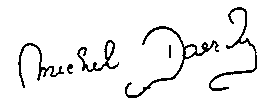 Michel Daerdy